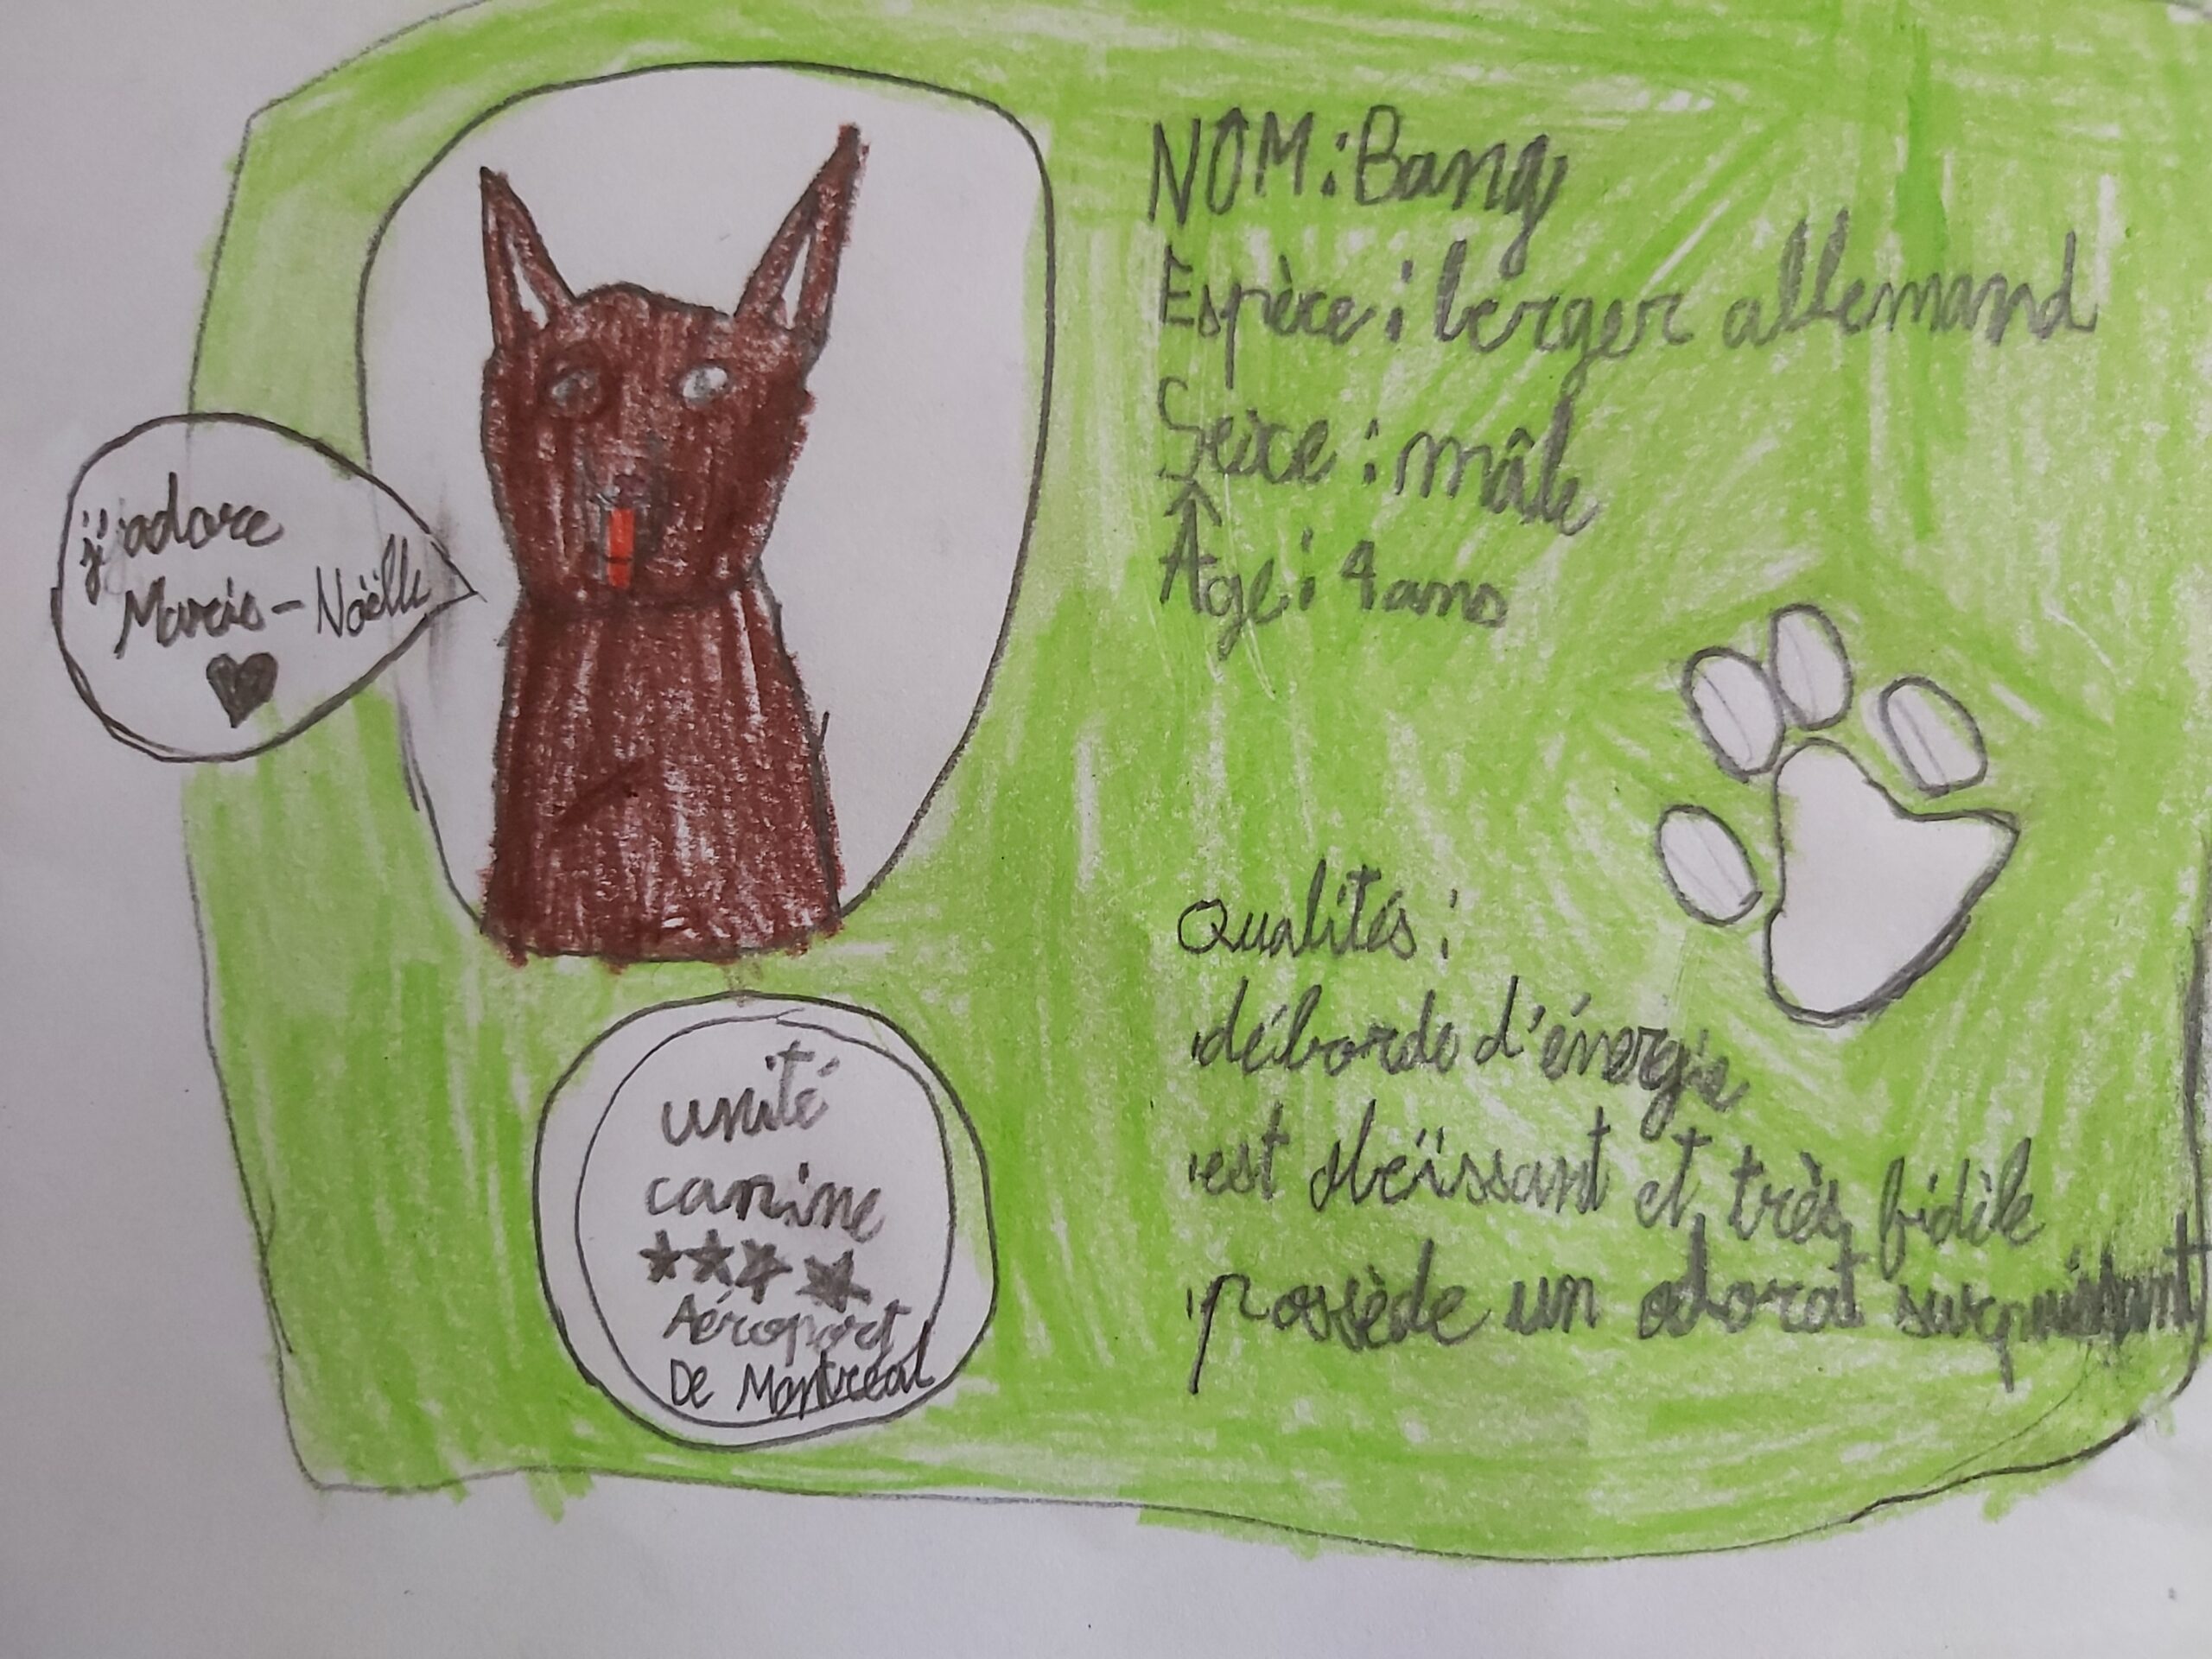 j'adore
Marie-Noëlle
NOM : Bang
Espèce : berger allemand
Sexe : mâle
Âge : 4 ans
Qualités :
déborde d'énergie
est obéïssant et très fidèle
possède un odorat surpuissant
unité
canine
Aéroport
De Montréal